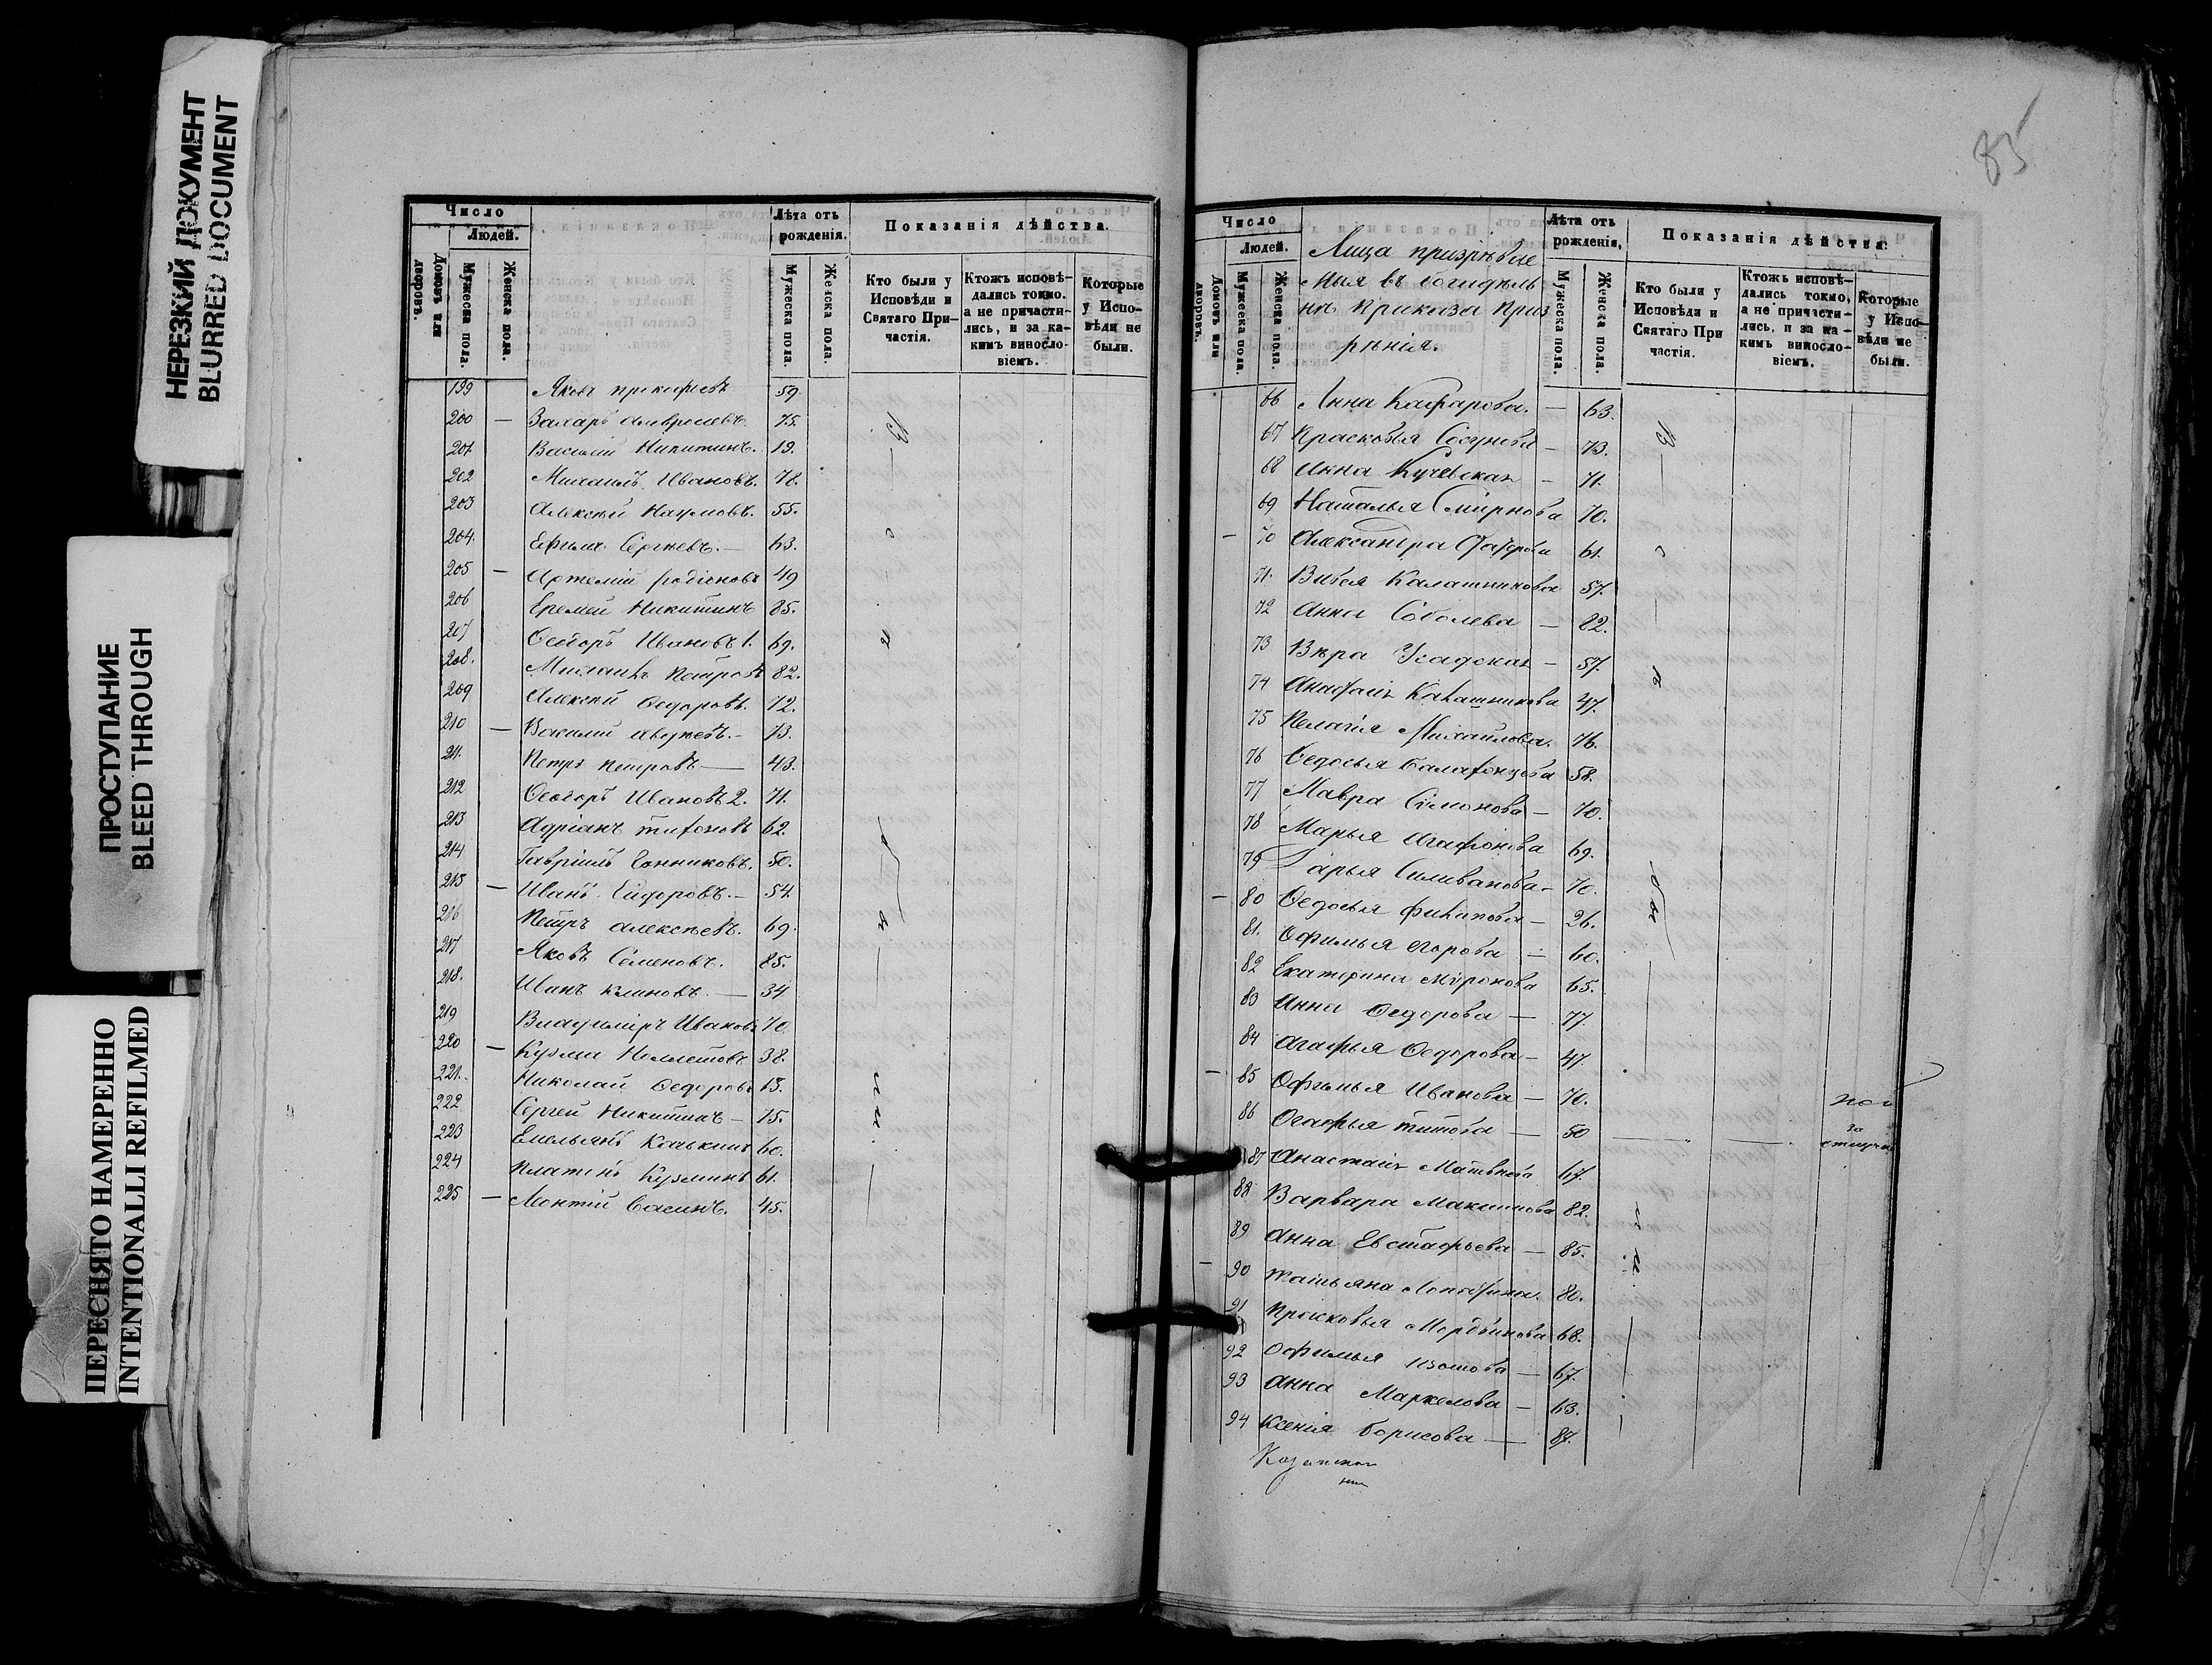 НЕРЕЗКИЙ ДОКУМЕНТ
BLURRED DOCUMENT
ПРОСТУПАНИЕ
BLEED THROUGH
ПЕРЕСНЯТО НАМЕРЕННО
INTENTIONALLI REFILMED
Число
Людей.
Домовъ или дворовъ.
Мужеска пола.
Женска пола.
Лѣта отъ рожденія.
Мужеска пола.
Женска пола.
Показанія дѣйства.
Кто были у Исповѣди и Святаго При-частія.
Ктожъ исповѣ-дались токмо. а не причасти-лись, и за ка-кимъ винослο-віемъ.
Которые у Испо-вѣди не были.
199 Яковъ Прокофьевъ 59.
200 — Захаръ 75.
201 Василій Никитинъ. 19.
202 Михаилъ Ивановъ. 78.
203 Алексѣй Наумовъ. 55.
204. Ефимъ Сергѣевъ. — 63.
205 — Артемій Родіоновъ 49
206 Еремей Никитинъ 85.
207 Ѳеодоръ Ивановъ 1. 69.
208. Михаилъ Петровъ 82.
209 Алексѣй Ѳедоровъ. 72.
210 — Василій — 73.
211. Петръ Петровъ — 43.
212 Ѳеодоръ Ивановъ 2. 71.
213 Адріанъ Тихоновъ 62.
214 Гавріилъ 50.
215 — Иванъ — 54.
216 Петръ Алексѣевъ. 69.
217 Яковъ Семеновъ. 85.
218. Иванъ Климовъ. — 34
219 Владиміръ Ивановъ 70
220 — Кузма 38.
221. Николай Ѳедоровъ 13.
222 Сергей Никитинъ — 75.
223 Емельянъ 60.
224 Платонъ Кузминъ 61.
225 — Васинъ. 45.
85
Число
Людей.
Домовъ или дворовъ.
Мужеска пола.
Женска пола.
Лица призрѣвае
мыя въ богадѣль
нѣ Приказа Приз
рѣнія.
Лѣта отъ рожденія,
Мужеска пола.
Женска пола.
Показанія дѣйства.
Кто были у Исповѣди и Святаго При частія.
Ктожъ исповѣ-дались токмо, а не причасти-лись, и за ка-кимъ винослο-віемъ.
Которые у Испо-вѣди не были.
66 Анна Кафарова. — 63.
67 Прасковья — 73.
68 Анна — 71.
69 Наталья Смирнова 70.
— 70 Александра 61.
71. Калашникова 57.
72 Анна Соболева — 82.
73 Вѣра — 57.
74 Калашникова 47.
75 Пелагія Михайлова. 76.
76 Ѳедосья 58.
77 Мавра Симонова — 70.
78 Марья Агафонова 69.
79 Дарья Силиванова — 70.
— 80 Ѳедосья Филипова — 26.
81. Офимья Егорова — 60.
82 Екатерина Миронова 65.
83 Анна Ѳедорова — 77.
84 Агафья Ѳедорова — 47.
— 85 Офимья Иванова — 70.
86 Огафья Титова — 50
за
87 Анастаія Матвѣева 67.
88 Варвара Максимова 82.
89 Анна Евстафьева — 85.
— 90 Татьяна Лопатина. 80.
91 Прасковья Мордвинова 68.
92 Офимья Изотова — 67.
93 Анна Маркелова — 63.
94 Ксенія Борисова — 87.